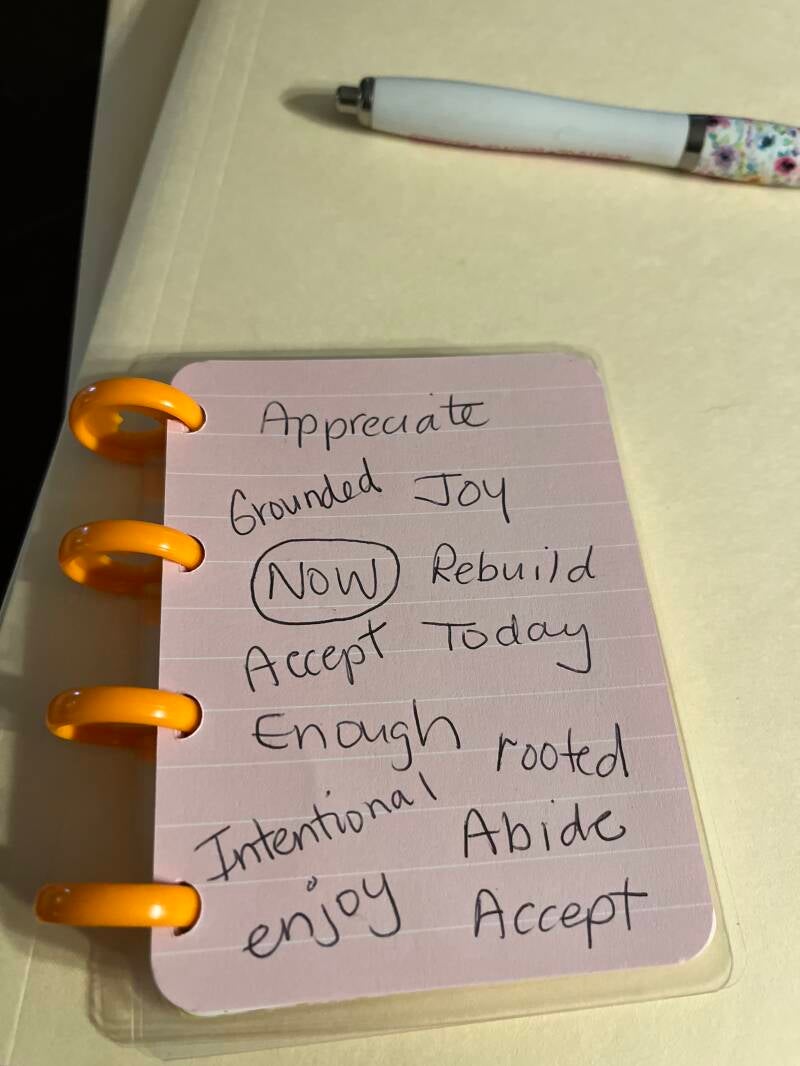 Appreciate
Grounded Joy
NOW Rebuild
Accept Today
Enough rooted
Intentional Abide
enjoy Accept